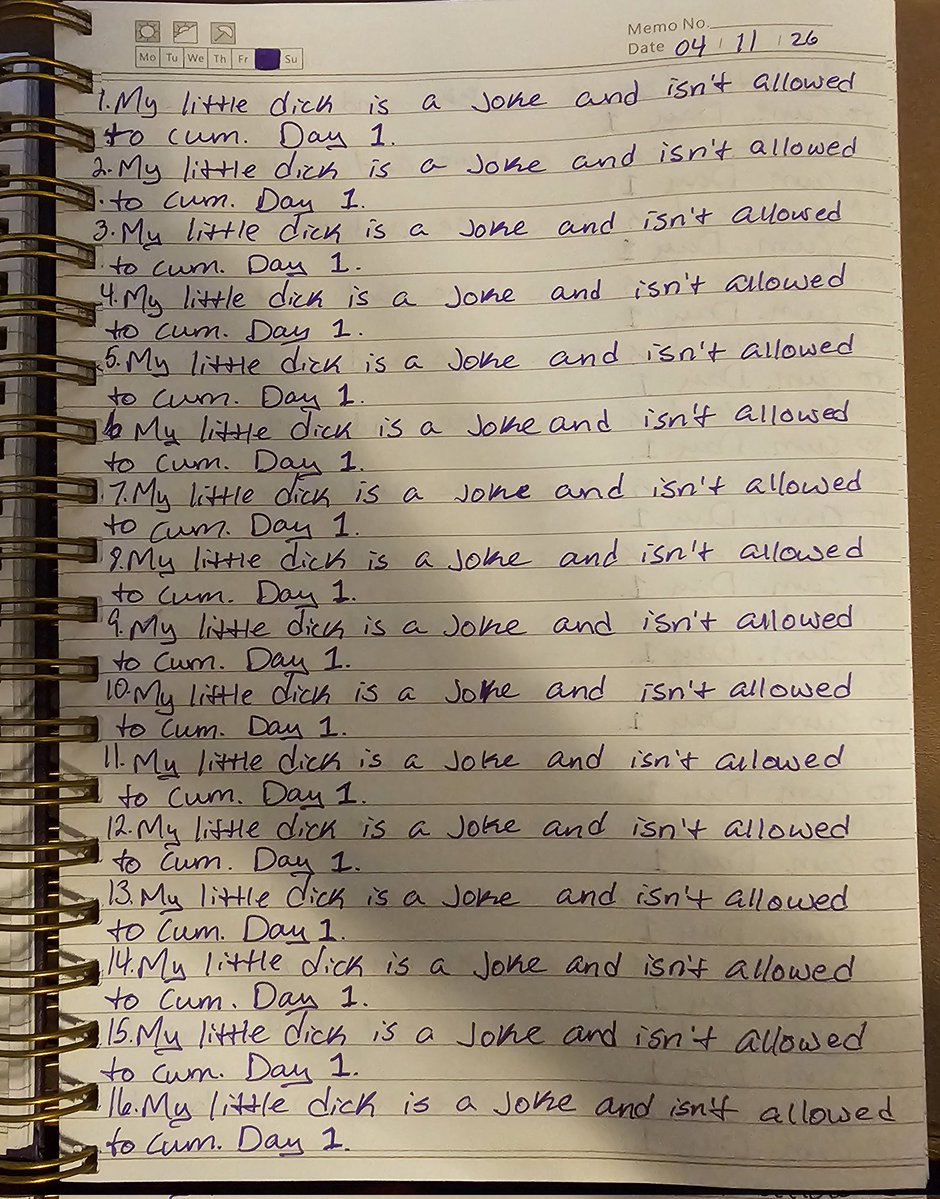 Memo No.
Mo Tu We Th Fr Su
Date 04 / 11 / 26
1. My little dick is a Joke and isn't allowed
to cum. Day 1.
2. My little dick is a Joke and isn't allowed
to cum. Day 1.
3. My little dick is a Joke and isn't allowed
to cum. Day 1.
4. My little dick is a Joke and isn't allowed
to cum. Day 1.
5. My little dick is a Joke and isn't allowed
to cum. Day 1.
6 My little dick is a Joke and isn't allowed
to cum. Day 1.
7. My little dick is a Joke and isn't allowed
to cum. Day 1.
8. My little dick is a Joke and isn't allowed
to cum. Day 1.
9. My little dick is a Joke and isn't allowed
to cum. Day 1.
10. My little dick is a Joke and isn't allowed
to cum. Day 1.
11. My little dick is a Joke and isn't allowed
to cum. Day 1.
12. My little dick is a Joke and isn't allowed
to cum. Day 1.
13. My little dick is a Joke and isn't allowed
to cum. Day 1.
14. My little dick is a Joke and isn't allowed
to cum. Day 1.
15. My little dick is a Joke and isn't allowed
to cum. Day 1.
16. My little dick is a Joke and isn't allowed
to cum. Day 1.